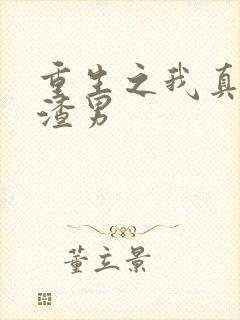 重生之我真
渣男
董立景